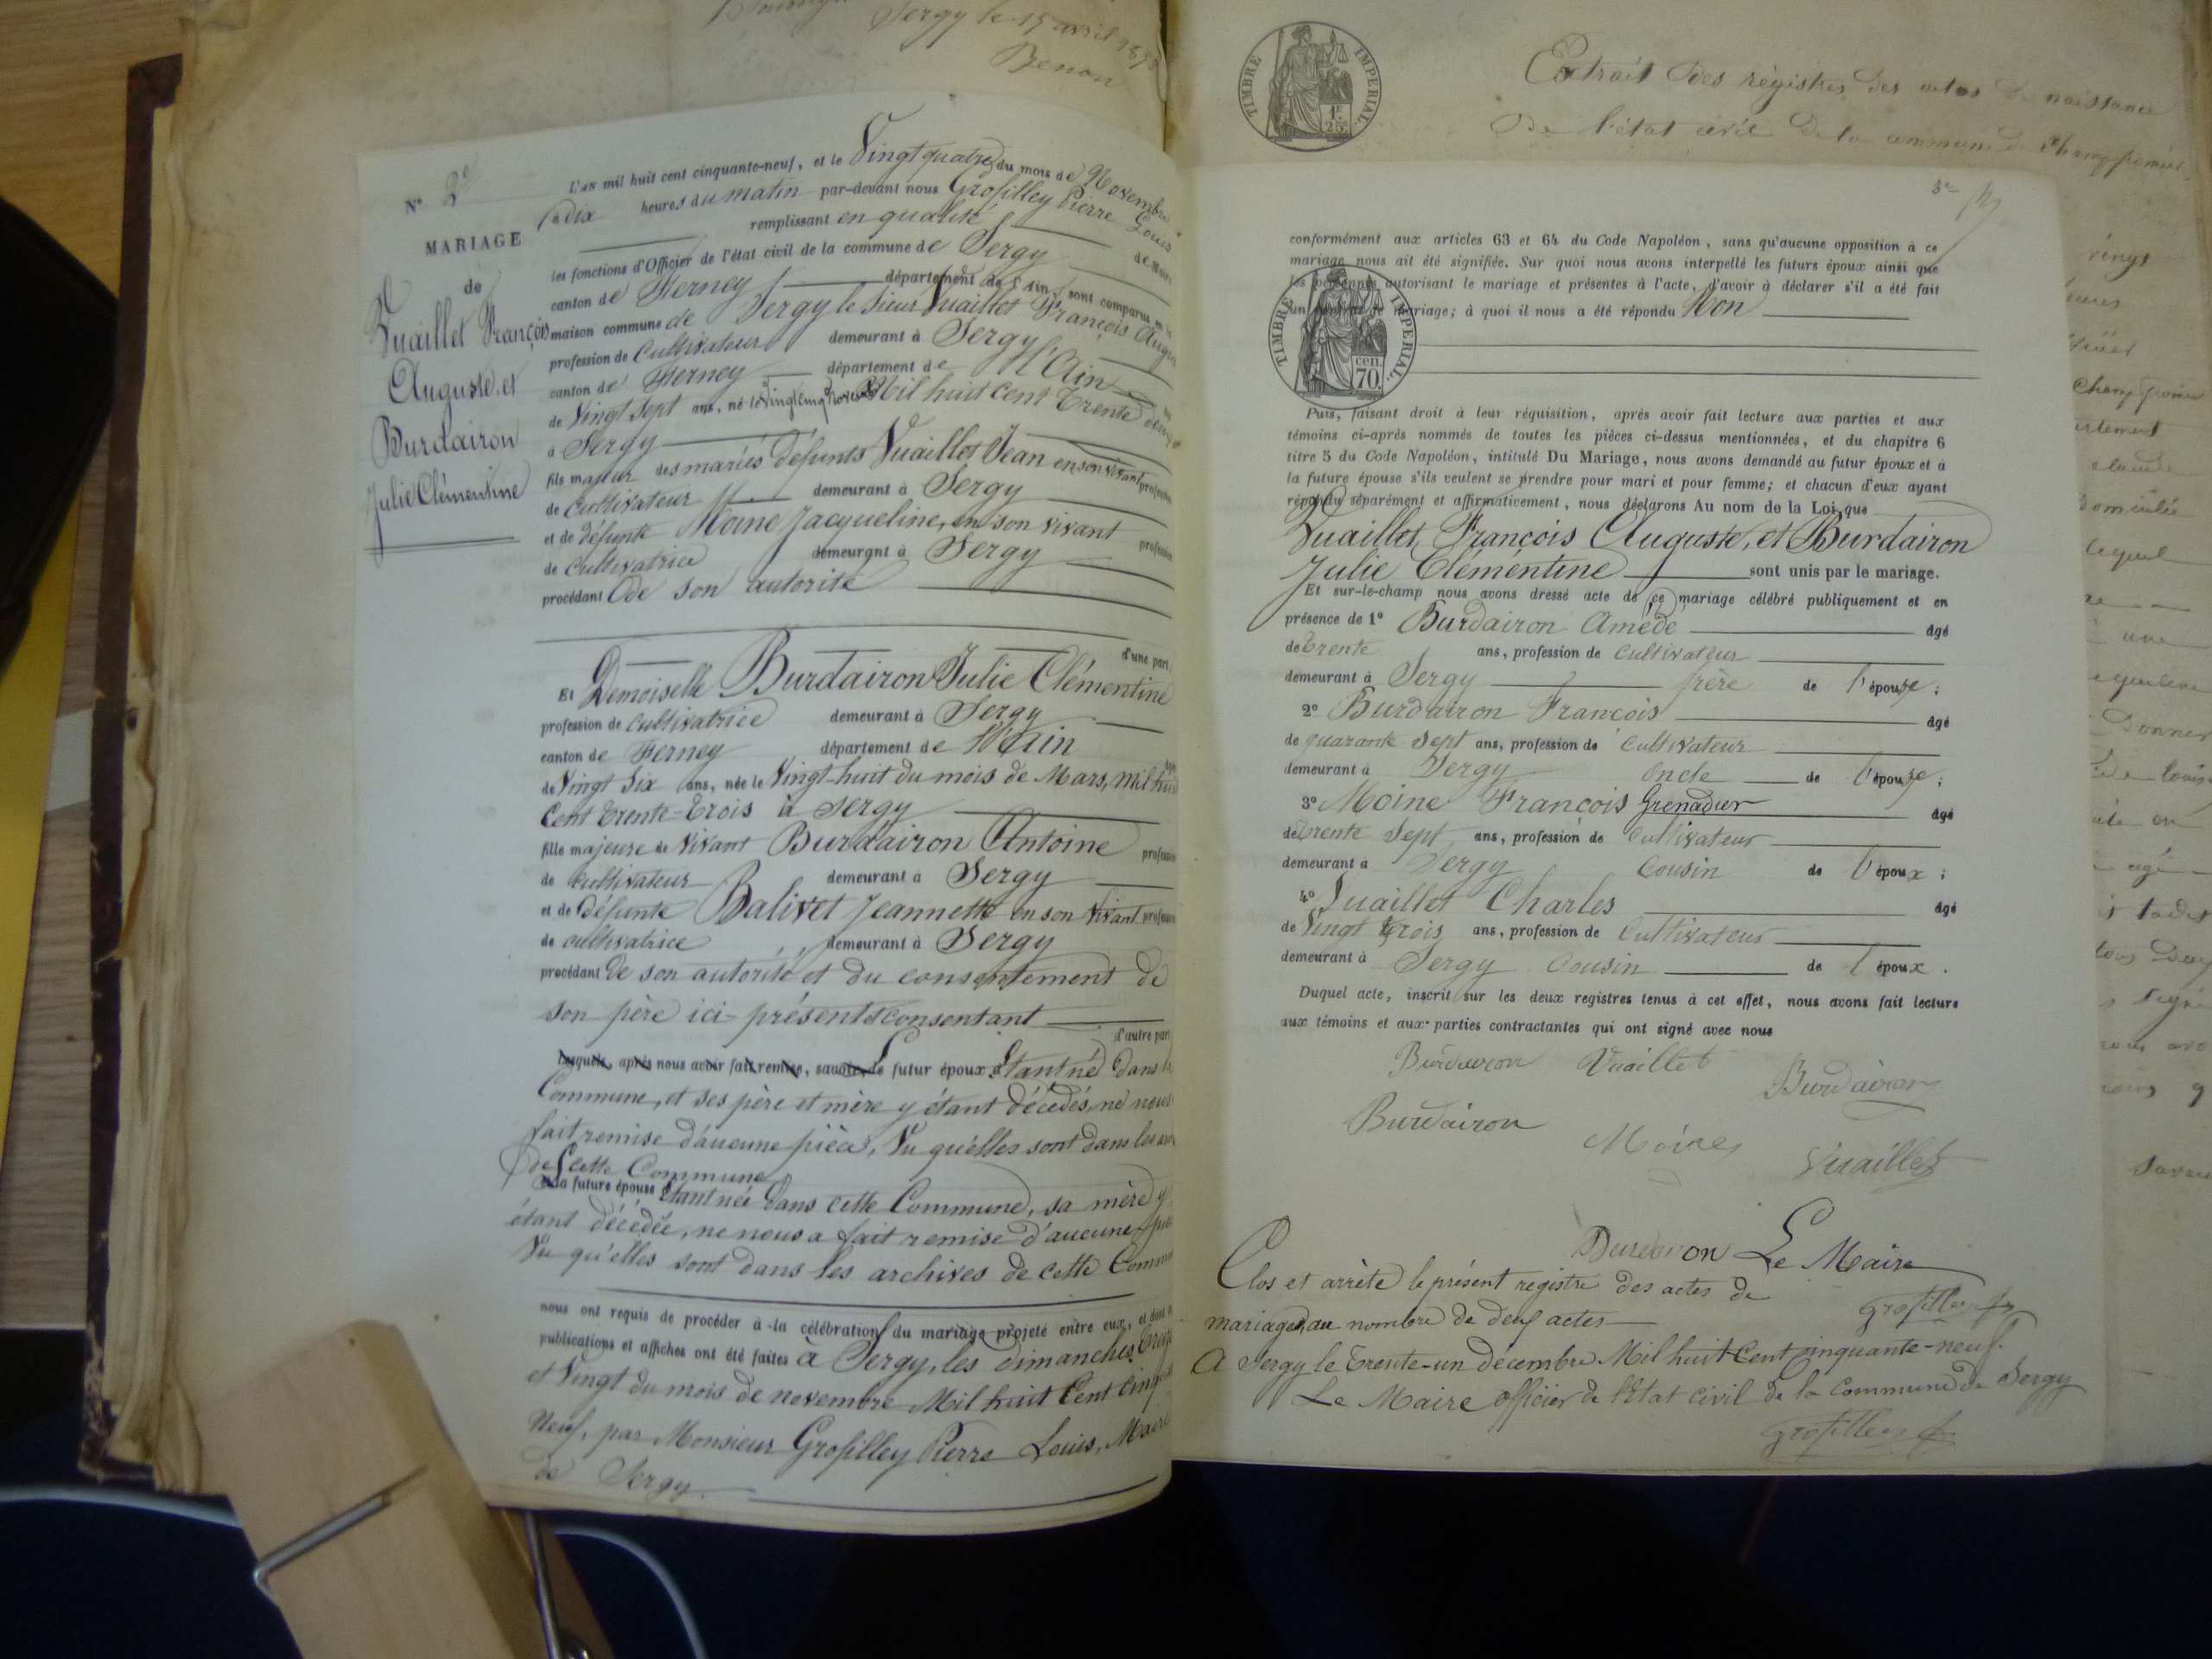 Sergy le 15 avril
Benon
N° 2e
MARIAGE
de
Vuaillet François
Auguste, et
Burdairon
Julie Clémentine
L'AN mil huit cent cinquante-neuf, et le Vingt quatre du mois de Novembre
à dix heures du matin par-devant nous Grosfilley Pierre Louis
remplissant en qualité de Maire
les fonctions d'Officier de l'état civil de la commune de Sergy
canton de Ferney département de l'Ain, sont comparus en la
maison commune de Sergy le Sieur Vuaillet François Auguste
profession de Cultivateur demeurant à Sergy
canton de Ferney département de l'Ain
de Vingt Sept ans, né le Vingt cinq Mil huit cent Trente deux
à Sergy
fils majeur des mariés défunts Vuaillet Jean en son vivant profession
de cultivateur demeurant à Sergy
et de défunte Moine Jacqueline, en son vivant profession
de cultivatrice demeurant à Sergy
procédant De son autorité
d'une part.
Et Demoiselle Burdairon Julie Clémentine
profession de cultivatrice demeurant à Sergy
canton de Ferney département de l'Ain
de Vingt Six ans, née le Vingt-huit du mois de Mars, mil huit
Cent Trente-Trois à Sergy
fille majeure de vivant Burdairon Antoine profession
de cultivateur demeurant à Sergy
et de défunte Balivet Jeannette en son vivant profession
de cultivatrice demeurant à Sergy
procédant de son autorité et du consentement de
son père ici présent et consentant
d'autre part
Lesquels, après nous avoir fait remise, savoir, Le futur époux Etant né dans la
Commune, et ses père et mère y étant décédés, ne nous
fait remise d'aucune pièce, Vu qu'elles sont dans les
de cette Commune
La future épouse Etant née dans cette Commune, sa mère y
étant décédée, ne nous a fait remise d'aucune
Vu qu'elles sont dans les archives de cette Comm
nous ont requis de procéder à la célébration du mariage projeté entre eux, et dont
publications et affiches ont été faites à Sergy, les dimanches Treize
et Vingt du mois de novembre Mil huit Cent Cinq
Neuf, par Monsieur Grosfilley Pierre Louis, Maire
de Sergy.
TIMBRE IMPERIAL
1F 25c
Extrait des régistres des actes de naissance
De l'état civil de la commune de
conformément aux articles 63 et 64 du Code Napoléon, sans qu'aucune opposition à ce
mariage nous ait été signifiée. Sur quoi nous avons interpellé les futurs époux ainsi que
les personnes autorisant le mariage et présentes à l'acte, d'avoir à déclarer s'il a été fait
un contrat de mariage; à quoi il nous a été répondu Non
TIMBRE IMPERIAL
cen. 70.
Puis, faisant droit à leur réquisition, après avoir fait lecture aux parties et aux
témoins ci-après nommés de toutes les pièces ci-dessus mentionnées, et du chapitre 6
titre 5 du Code Napoléon, intitulé Du Mariage, nous avons demandé au futur époux et à
la future épouse s'ils veulent se prendre pour mari et pour femme; et chacun d'eux ayant
répondu séparément et affirmativement, nous déclarons Au nom de la Loi que
Vuaillet, François Auguste, et Burdairon
Julie Clémentine sont unis par le mariage.
Et sur-le-champ nous avons dressé acte de ce mariage célébré publiquement et en
présence de 1° Burdairon Amédé âgé
de Trente ans, profession de cultivateur
demeurant à Sergy frère de l'épouse;
2° Burdairon François âgé
de quarante Sept ans, profession de cultivateur
demeurant à Sergy oncle de l'épouse;
3° Moine François Grenadier âgé
de Trente Sept ans, profession de cultivateur
demeurant à Sergy cousin de l'époux;
4° Vuaillet Charles âgé
de Vingt Trois ans, profession de Cultivateur
demeurant à Sergy Cousin de l'époux.
Duquel acte, inscrit sur les deux registres tenus à cet effet, nous avons fait lecture
aux témoins et aux parties contractantes qui ont signé avec nous
Burdairon Vuaillet Burdairon
Burdairon Moine Vuaillet
Burdairon Le Maire
Clos et arrêté le présent registre des actes de
mariages, au nombre de deux actes Grosfilley
A Sergy le Trente-un décembre Mil huit Cent cinquante-neuf.
Le Maire officier de l'Etat civil de la Commune de Sergy
Grosfilley